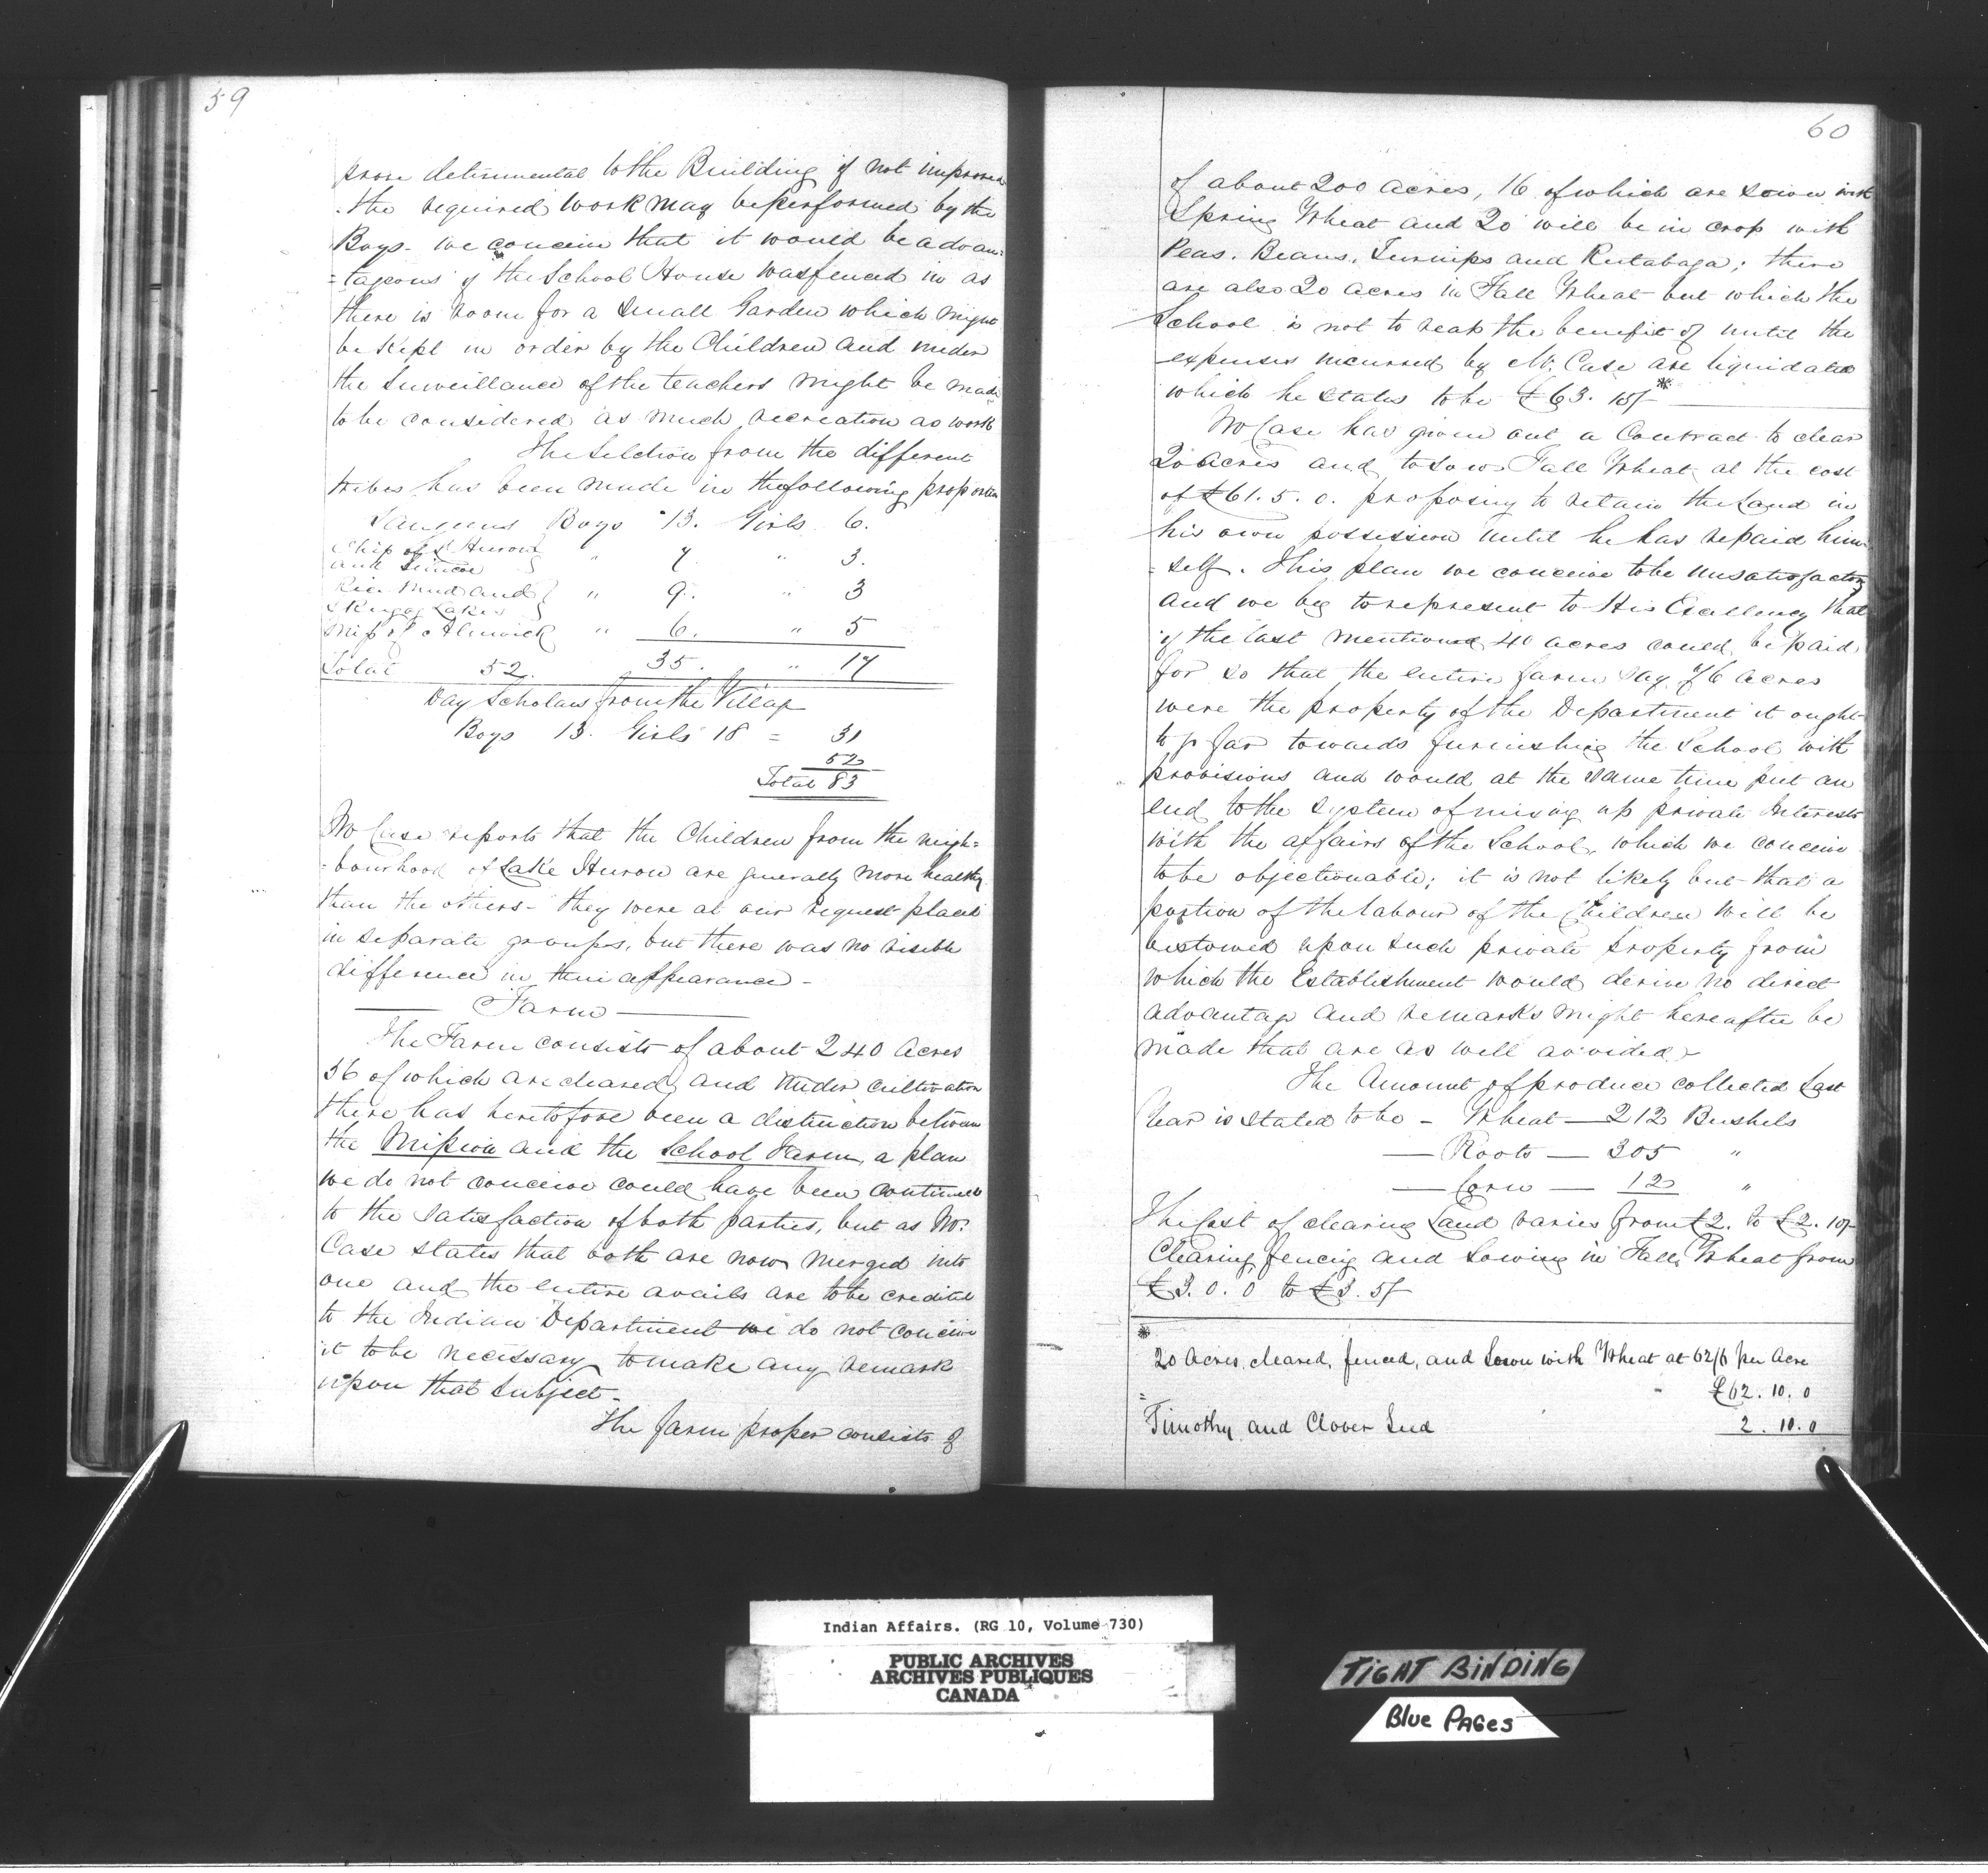 59
prove detrimental to the Building if not improved
the required work may be performed by the
Boys - we conceive that it would be advan=
=tageous if the School House was fenced in as
there is room for a Small Garden which might
be kept in order by the Children and under
the Surveillance of the teachers might be made
to be considered as much recreation as work
The Selection from the different
tribes has been made in the following proportion
Saugeens Boys 13. Girls 6.
Chip of L Huron
and Simcoe } " 7 " 3.
Rice Mud and
Skugog Lakes } " 9. " 3
Miss of Alnwick " 6. " 5
Total 52. 35. " 17
Day Scholars from the Village
Boys 13. Girls 18 = 31
52
Total 83
Mr Case reports that the Children from the neigh=
-bourhood of Lake Huron are generally more healthy
than the others - they were at our request placed
in separate groups, but there was no visible
difference in their appearance -
Farm
The Farm consists of about 240 Acres
56 of which are cleared and under cultivation
there has heretofore been a distinction between
the Mission and the School Farm, a plan
we do not conceive could have been continued
to the satisfaction of both parties, but as Mr.
Case states that both are now merged into
one and the entire avails are to be credited
to the Indian Department we do not conceive
it to be necessary to make any remark
upon that Subject -
The farm proper consists of
60
of about 200 acres, 16 of which are sown with
Spring Wheat and 20 will be in crop with
Peas. Beans, Turnips and Rutabaga; there
are also 20 acres in Fall Wheat but which the
School is not to reap the benefit of until the
expenses incurred by Mr. Case are liquidated
which he states to be £63. 15/- *
Mr Case has given out a Contract to clear
20 acres and to sow Fall Wheat at the cost
of £61. 5. 0. proposing to retain the Land in
his own possession until he has repaid him=
=self. This plan we conceive to be unsatisfactory
and we beg to represent to His Excellency that
if the last mentioned 40 acres could be paid
for so that the entire farm say 76 Acres
were the property of the Department it ought
to go far towards furnishing the School with
provisions and would at the same time put an
end to the system of mixing up private Interests
with the affairs of the School, which we conceive
to be objectionable; it is not likely but that a
portion of the labour of the Children will be
bestowed upon such private property from
which the Establishment would derive no direct
advantage and remarks might hereafter be
made that are as well avoided -
The Amount of produce collected Last
Year is stated to be - Wheat — 212 Bushels
— Roots — 305 "
— Corn — 12 "
The Cost of clearing Land varies from £2. to £2. 10/-
Clearing, fencing and Sowing in Fall Wheat from
£3. 0. 0 to £3. 5/-
*
20 Acres, cleared, fenced, and Sown with Wheat at 62/6 per Acre
£62. 10. 0
Timothy and Clover Seed 2. 10. 0
Indian Affairs. (RG 10, Volume 730)
PUBLIC ARCHIVES
ARCHIVES PUBLIQUES
CANADA
TIGHT BINDING
Blue PAGes